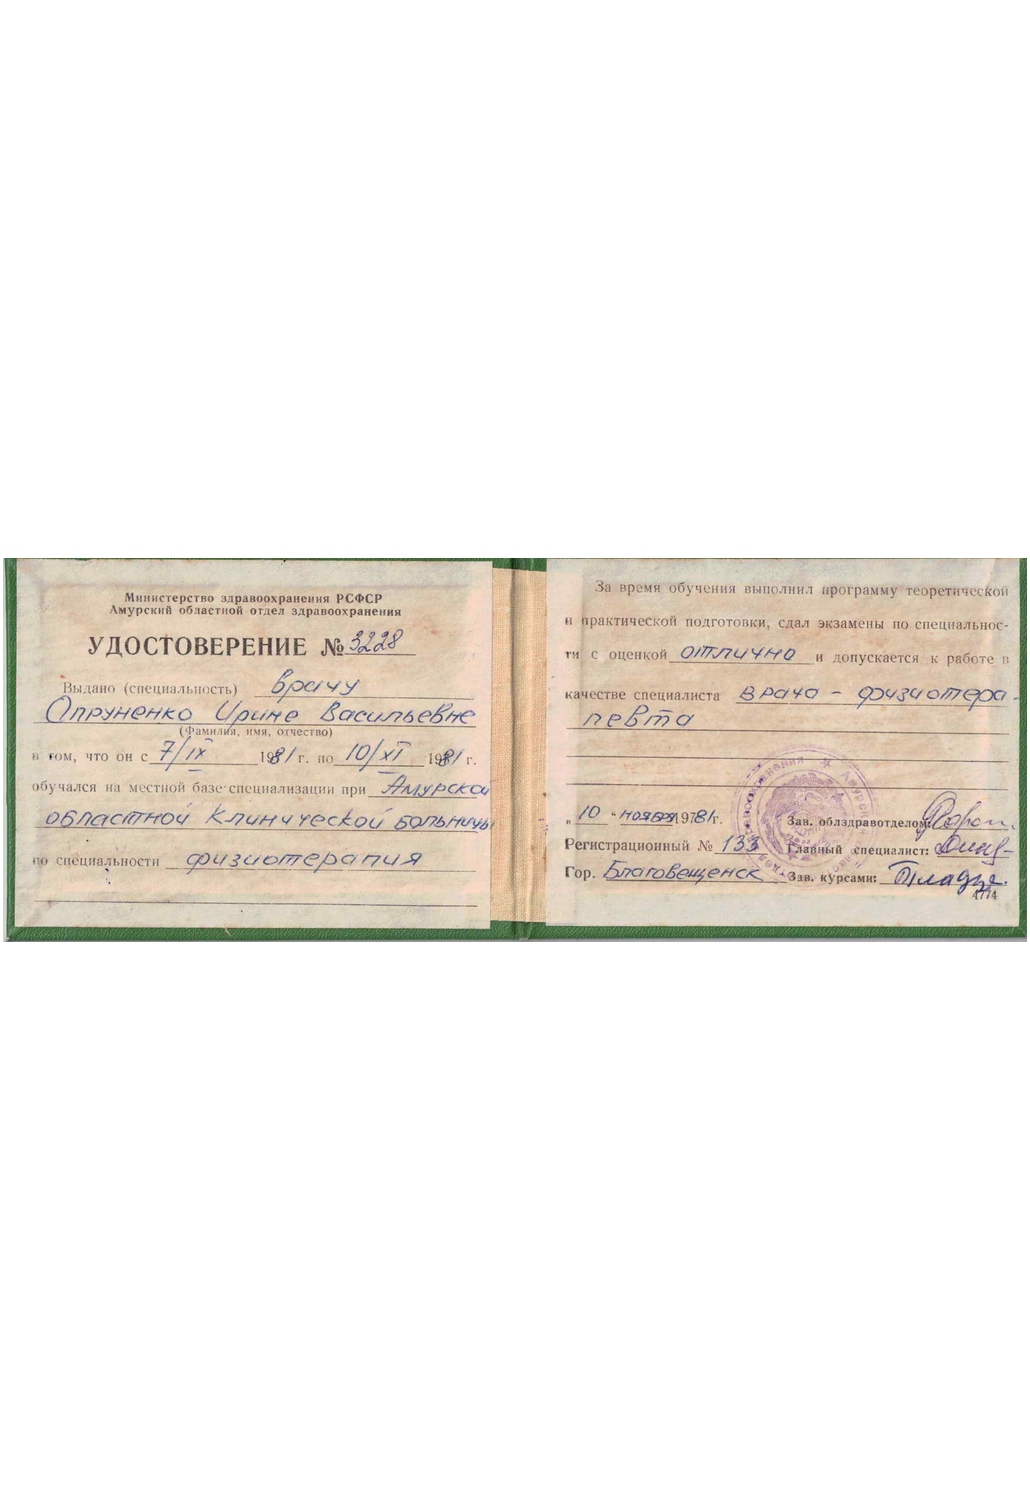 Министерство здравоохранения РСФСР
Амурский областной отдел здравоохранения
УДОСТОВЕРЕНИЕ № 3228
Выдано (специальность) врачу
Опруненко Ирине Васильевне
(Фамилия, имя, отчество)
в том, что он с 7/IX 1981 г. по 10/XI 1981 г.
обучался на местной базе специализации при Амурской
областной Клинической больницы
по специальности физиотерапия
За время обучения выполнил программу теоретической
и практической подготовки, сдал экзамены по специальнос-
ти с оценкой отлично и допускается к работе в
качестве специалиста врача - физиотера-
певта
„ 10 " ноября 1981 г. Зав. облздравотделом:
Регистрационный № 133 Главный специалист:
Гор. Благовещенск Зав. курсами:
4774